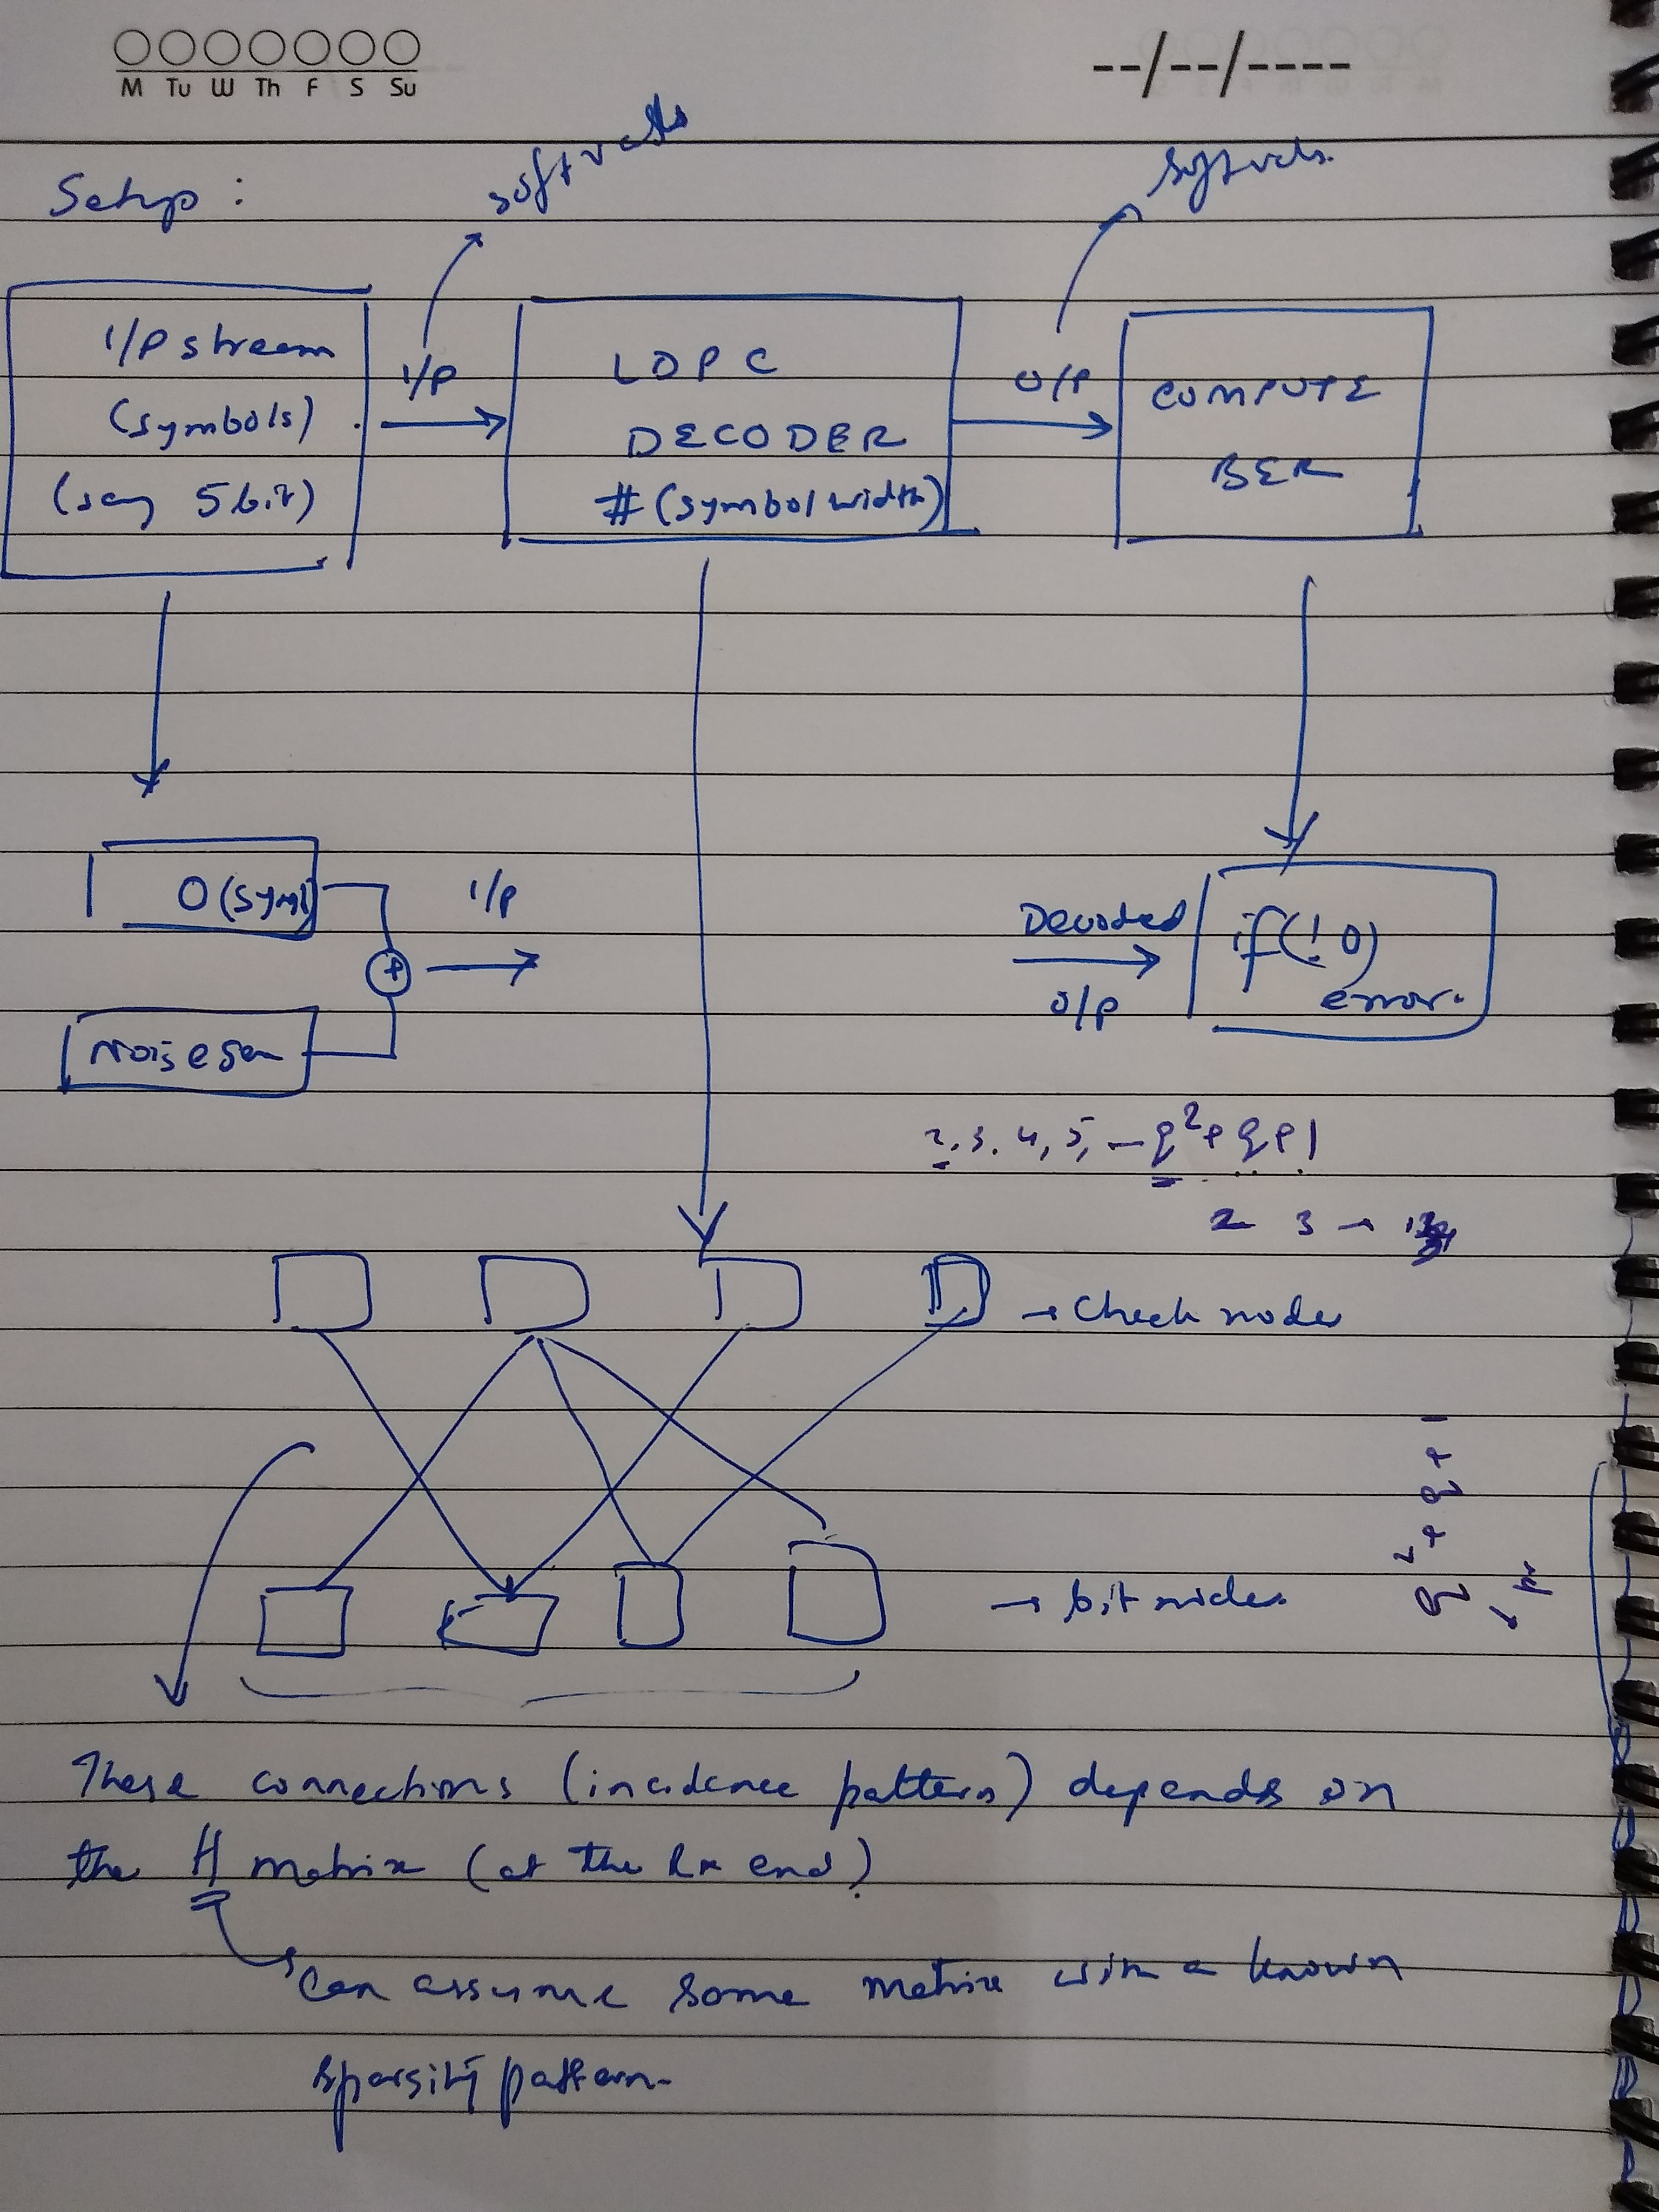 M Tu W Th F S Su
--/--/----
Setup :
soft vals
soft vals.
I/P stream
(symbols)
(say 5 bit)
I/P
LDPC
DECODER
#(symbol width)
O/P
COMPUTE
BER
0 (sym)
I/P
Noise gen
+
Decoded
O/P
if(! 0)
error.
2, 3, 4, 5, — q² + q + 1
2 3 →
→ Check nodes
→ bit nodes.
q² + q + 1
These connections (incidence pattern) depends on
the H matrix (at the Rx end)
Can assume some matrix with a known
sparsity pattern.